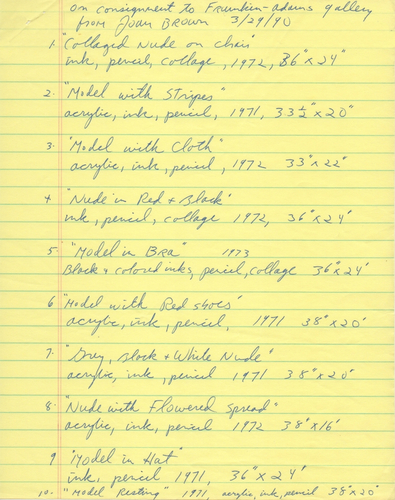 on consignment to Frumkin-adams gallery
from Joan Brown 3/29/90
1. "Collaged Nude on chair"
ink, pencil, collage, 1972, 36"x24"
2. "Model with Stripes"
acrylic, ink, pencil, 1971, 33½"x20"
3. "Model with Cloth"
acrylic, ink, pencil, 1972 33"x22"
4 "Nude in Red + Black"
ink, pencil, collage 1972, 36"x24"
5 "Model in Bra" 1973
Black + colored inks, pencil, collage 36"x24"
6 "Model with Red shoes"
acrylic, ink, pencil, 1971 38"x20"
7. "Grey, Black + White Nude"
acrylic, ink, pencil 1971 38"x20"
8. "Nude with Flowered Spread"
acrylic, ink, pencil 1972 38"x16"
9 "Model in Hat"
ink, pencil 1971, 36"x24"
10. "Model Resting" 1971, acrylic, ink, pencil 38"x20"